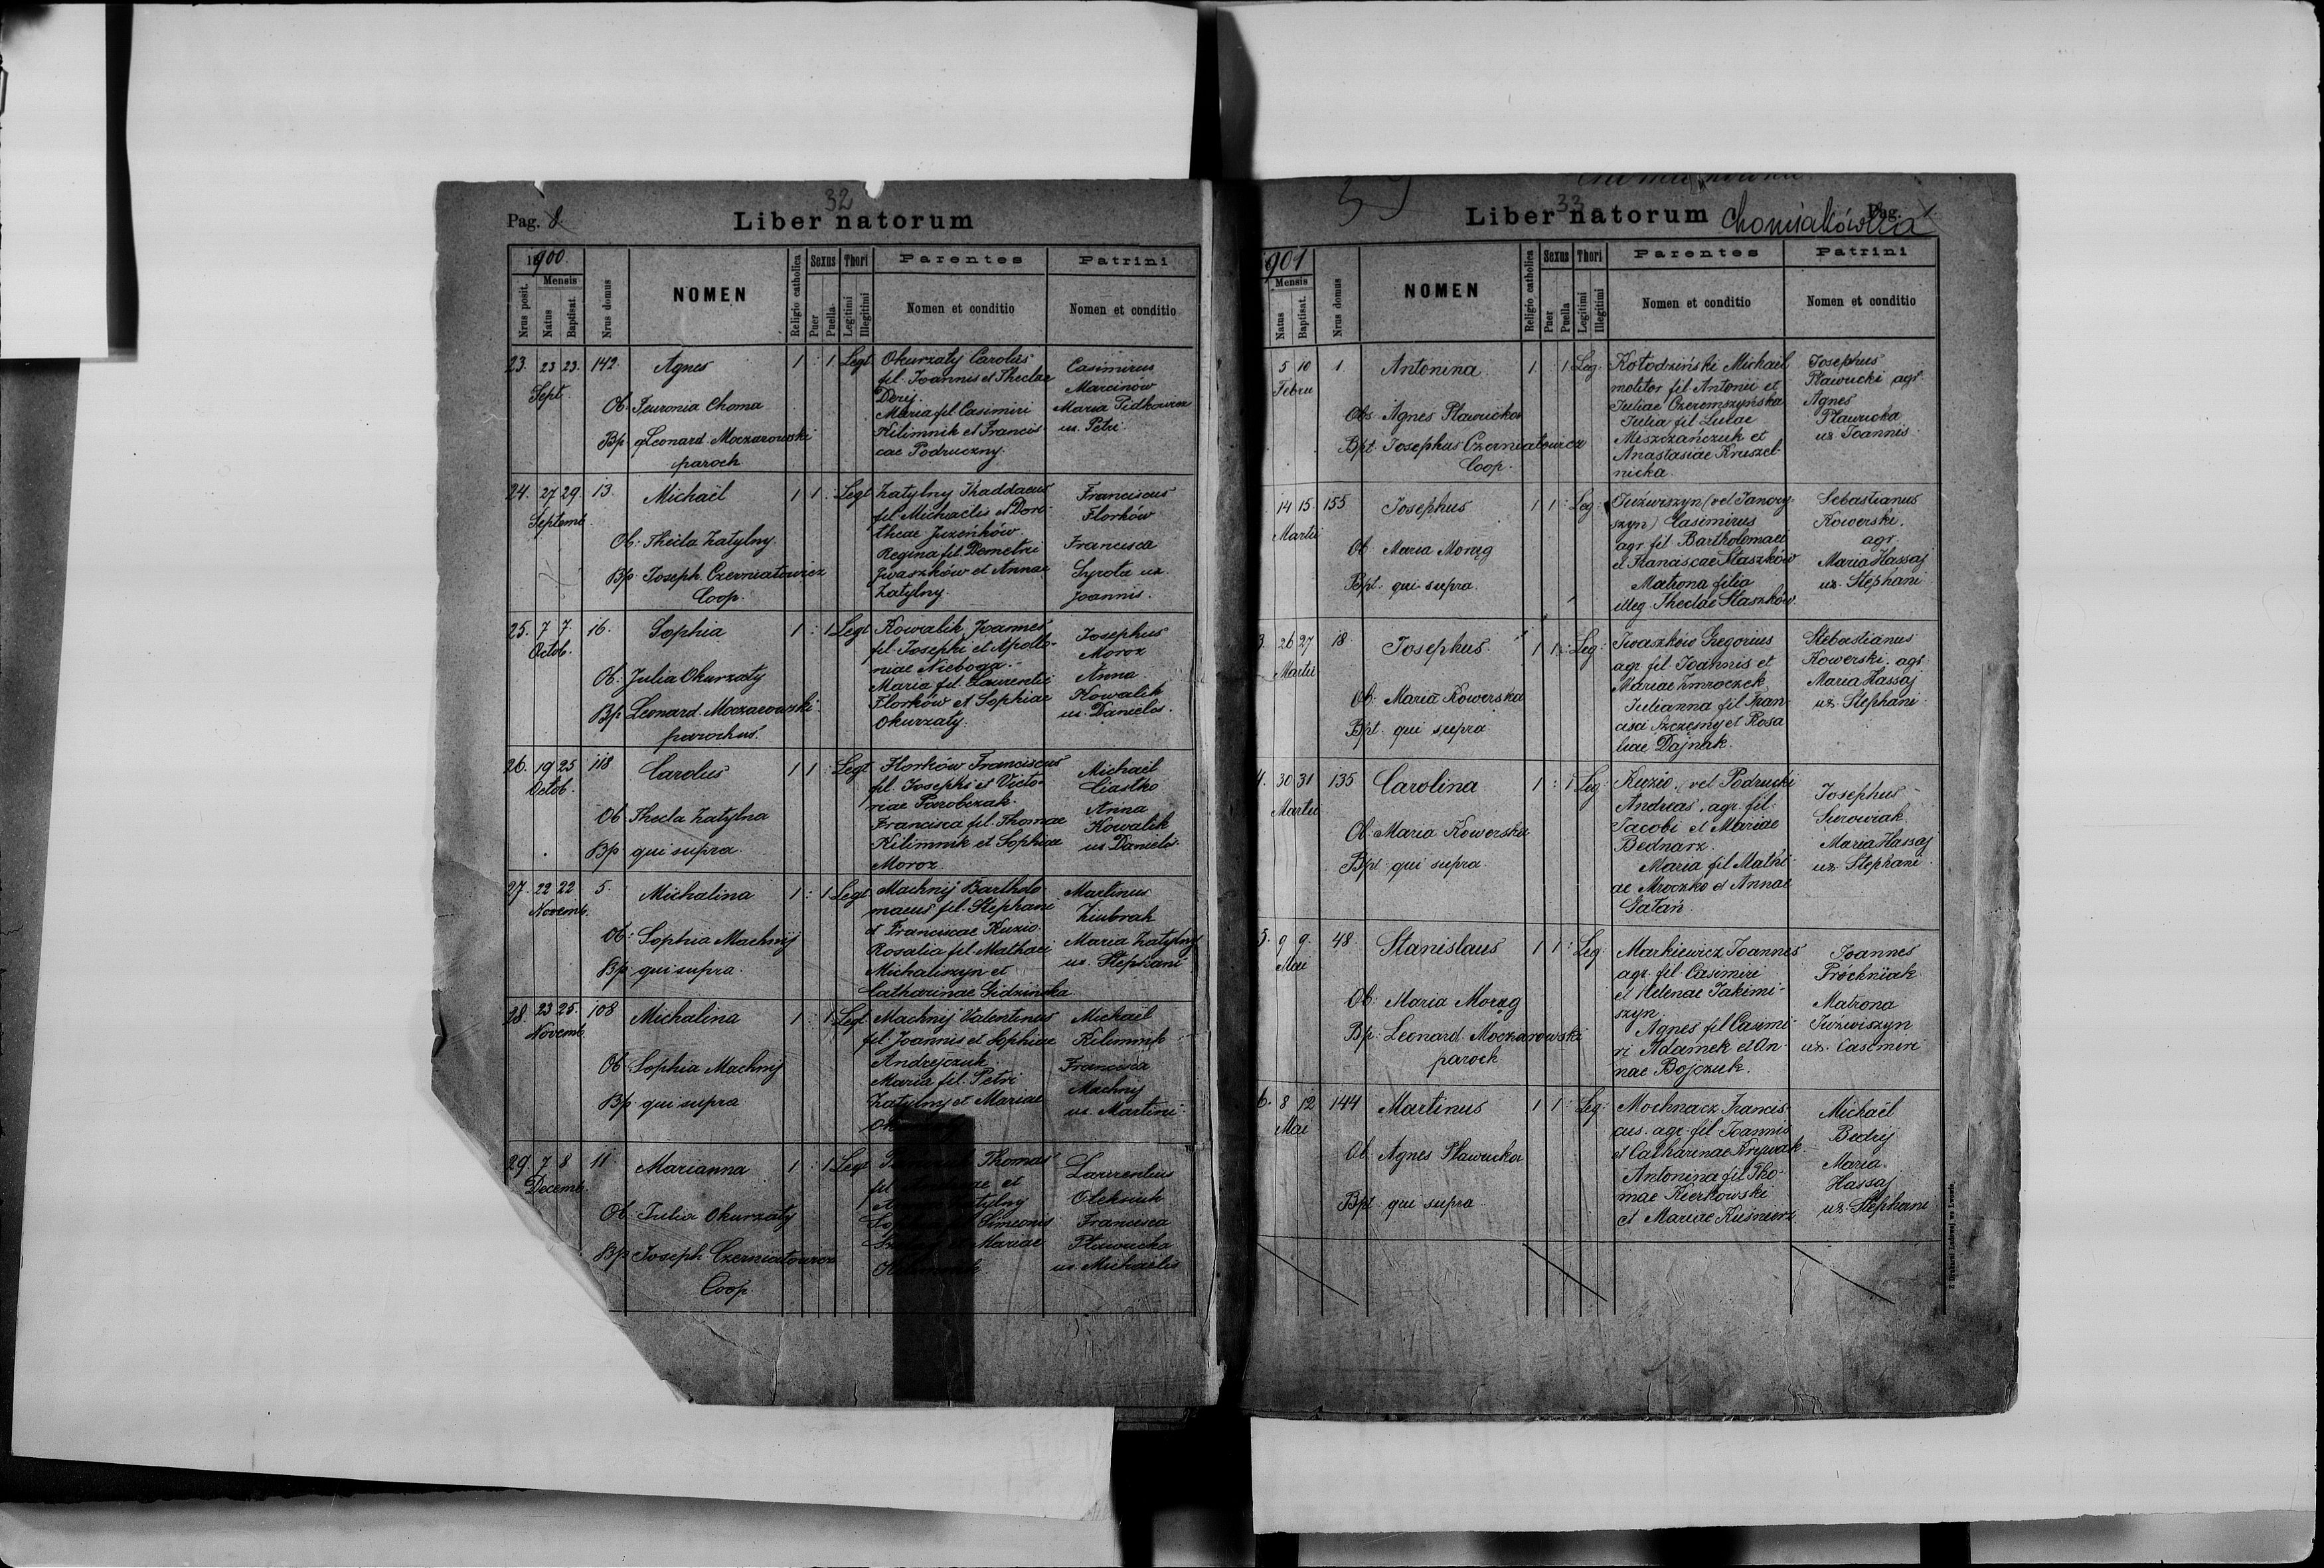 32
Pag. 8
Liber natorum
1900.
Nrus posit.
Mensis
Natus
Baptisat.
Nrus domus
NOMEN
Religio catholica
Sexus
Puer
Puella
Thori
Legitimi
Illegitimi
Parentes
Nomen et conditio
Patrini
Nomen et conditio
23. 23 23. 142 Agnes 1 : 1 Legt
Sept.
Ob:
Choma
Bp Leonard Moczarowski
paroch
Okurzaty Carolus
fil. Joannis et Theclae
Derij.
Maria fil Casimiri
Kilimnik et Francis
cae Podruczny.
Casimirus
Marcinów
Maria
ux. Petri
24. 27 29. 13. Michaël 1 1 : Legt
Septemb.
Ob: Thecla Zatylny.
Bp Joseph. Czerniatowicz
Coop.
Zatylny Thaddaeus
fil. Michaelis et Doro-
theae Juzeńków.
Regina fil. Demetri
Iwaszków et Annae
Zatylny.
Franciscus
Florków
Francisca
Syrota ux.
Joannis.
25. 7 7. 16. Sophia 1 : 1 Legt
Octob.
Ob: Julia Okurzaty
Bp Leonard Moczarowski
parochus.
Kowalik Joannes
fil. Josephi et Apollo-
niae Nieboga.
Maria fil. Laurentii
Florków et Sophiae
Okurzaty.
Josephus
Moroz
Anna
Kowalik
ux. Danielis.
26. 19 25 118 Carolus 1 1 : Legt
Octob.
Ob Thecla Zatylna
Bp qui supra.
Florków Franciscus
fil. Josephi et Victo-
riae Parobczak.
Francisca fil. Thomae
Kilimnik et Sophiae
Moroz
Michaël
Ciastko
Anna
Kowalik
ux Danielis.
27. 22 22 5. Michalina 1 : 1 Legt
Novemb.
Ob: Sophia Machnij
Bp qui supra.
Machnij Bartholo-
maeus fil. Stephani
et Franciscae Kuzio.
Rosalia fil. Mathaei
Michaliszyn et
Catharinae Gidzinska.
Martinus
Ziubrak
Maria Zatylny
ux. Stephani
28. 23 25. 108 Michalina 1 : 1 Legt
Novemb.
Ob Sophia Machnij
Bp qui supra
Machnij Valentinus
fil. Joannis et Sophiae
Andrejczuk
Maria fil. Petri
Zatylny et Mariae
Michaël
Kilimnik
Francisca
Machnij
ux. Martini.
29. 7 8 11 Marianna 1 : 1 Legt
Decemb.
Ob: Julia Okurzaty
Bp Joseph. Czerniatowicz
Coop
Thomas
fil et
Simeonis
Mariae
Laurentius
Oleksiuk
Francisca
Pławucka
ux. Michaelis
33
Liber natorum Chomiakówka Pag. 1
1901
Mensis
Natus
Baptisat.
Nrus domus
NOMEN
Religio catholica
Sexus
Puer
Puella
Thori
Legitimi
Illegitimi
Parentes
Nomen et conditio
Patrini
Nomen et conditio
5 10 1 Antonina 1 : 1 Leg.
Febru
Obs. Agnes Pławucka
Bpt. Josephus Czerniatowicz
Coop.
Kołodziński Michaël
molitor fil. Antonii et
Juliae Czeromszyńska
Julia fil Lucae
Miszczańczuk et
Anastasiae Kruszel-
nicka.
Josephus
Pławucki agr.
Agnes
Pławucka
ux Joannis
14 15 155 Josephus 1 1 : Leg:
Martii
Ob. Maria Morąg
Bpt. qui supra
Juźwiszyn (vel
szyn) Casimirus
agr. fil. Bartholomaei
et Franciscae Staszków
Matrona filia
illeg. Theclae Staszków.
Sebastianus
Kowerski.
agr.
Maria Hassaj
ux. Stephani
3. 26 27 18 Josephus 1 1 : Leg:
Martii
Ob. Maria Kowerska
Bpt. qui supra
Iwaszków Gregorius
agr. fil. Joannis et
Mariae Zmroczek
Julianna fil Fran-
cisci Szczęsny et Rosa
liae Dajnak.
Sebastianus
Kowerski. agr.
Maria Hassaj
ux. Stephani.
4. 30 31 135 Carolina 1 : 1 Leg:
Martii
Ob. Maria Kowerska
Bpt. qui supra.
Kuzio, vel Podrucki
Andreas, agr. fil.
Jacobi et Mariae
Bednarz.
Maria fil Mathi-
ae Mroczko et Annae
Gałań.
Josephus
Surowiak.
Maria Hassaj
ux. Stephani.
5. 9 9. 48. Stanislaus 1 1 : Leg:
Mai
Ob: Maria Morąg
Bp. Leonard Moczarowski
paroch
Markiewicz Joannes
agr. fil. Casimiri
et Helenae Jakimi-
szyn.
Agnes fil Casimi-
ri Adamek et An-
nae Bojczuk.
Joannes
Próchniak
Matrona
Juźwiszyn
ux. Casimiri
6. 8 12 144 Martinus 1 1 : Leg:
Mai
Ob. Agnes Pławucka
Bpt. qui supra
Mochnacz Francis-
cus. agr. fil. Joannis
et Catharinae Krywak
Antonina fil Tho-
mae Kierkowski
et Mariae Kuśnierz
Michaël
Bedrij
Maria.
Hassaj
ux. Stephani
Z Drukarni Ludowej we Lwowie.